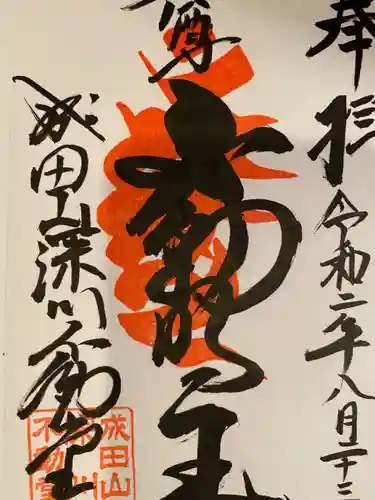 奉拝
令和二年八月二十
尊
不動明王
成田山深川不動堂
成田山
深川
不動堂